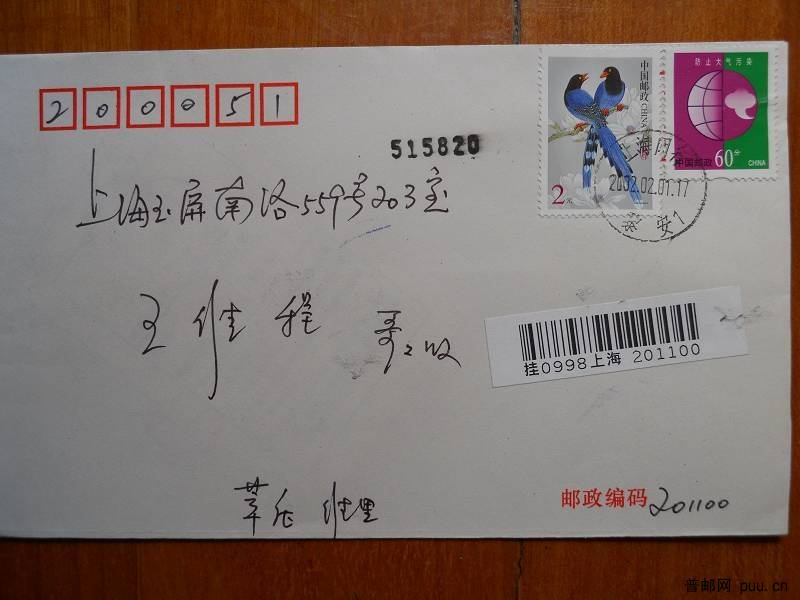 200051
中国邮政 CHINA
2元
防止大气污染
中国邮政 60分 CHINA
515820
上海
2002.02.01.17
安1
上海玉屏南路559号203室
王维程 哥:收
挂0998上海 201100
莘庄 维里
邮政编码 201100
普邮网 puu.cn